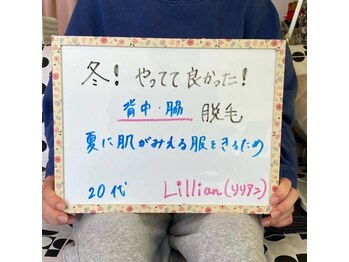 冬! やってて良かった!
背中・脇 脱毛
夏に肌がみえる服をきるため
20代 Lillian(リリアン)